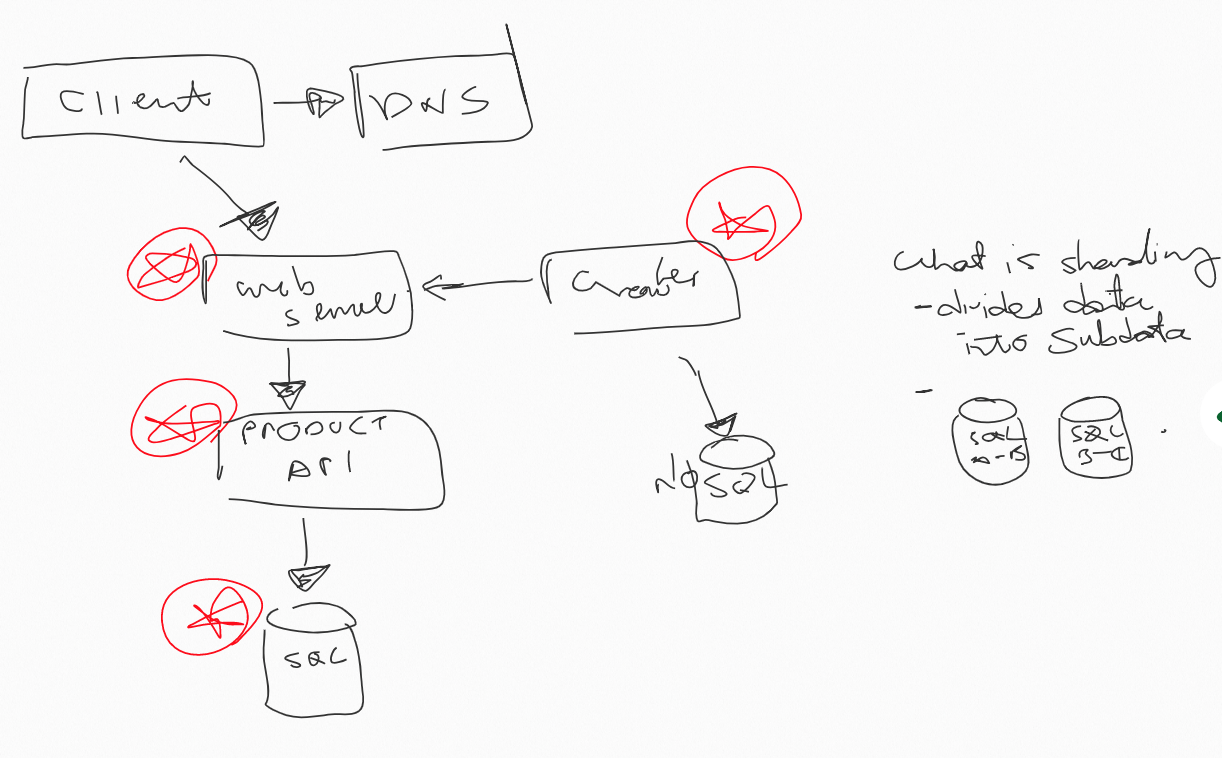 Client
DNS
web
server
Crawler
PRODUCT
API
SQL
NO SQL
What is sharding
- divides data
into Subdata
-
SQL
A-B
SQL
B-C